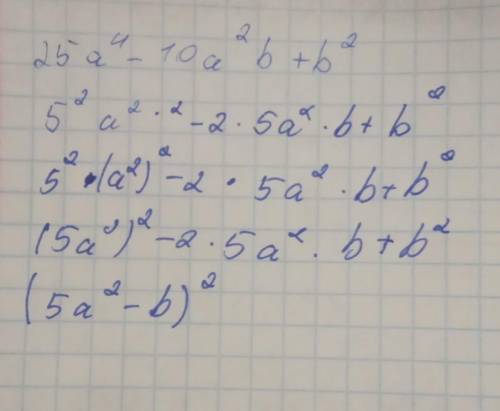 25a⁴ - 10a²b + b²
5² a²·² - 2 · 5a² · b + b²
5² · (a²)² - 2 · 5a² · b + b²
(5a²)² - 2 · 5a² · b + b²
(5a² - b)²